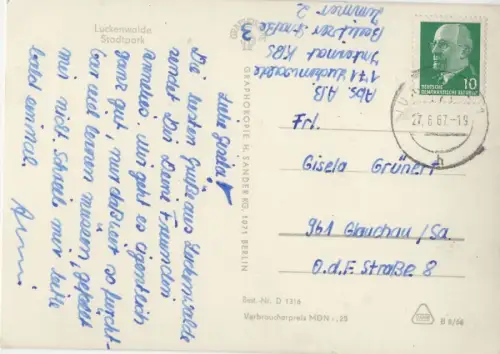 Luckenwalde
Stadtpark
Liebe Gisela!
Die besten Grüße aus Luckenwalde
sendet Dir Deine Freundin
Annie. Mir geht es eigentlich
ganz gut, nur daß wir so furcht-
bar viel lernen müssen, gefällt
mir nicht. Schreib mir bitte
bald einmal.
GRAPHOKOPIE H. SANDER KG, 1071 BERLIN
Abs. A.B.
171 Luckenwalde
Internat KBS
Straße 3
Zimmer 2
DEUTSCHE
DEMOKRATISCHE REPUBLIK
10
27.6.67-19
Frl.
Gisela Grünert
961 Glauchau/Sa.
O.d.F. Straße 8
Best.-Nr. D 1316
Verbraucherpreis MDN -,25
B 6/66